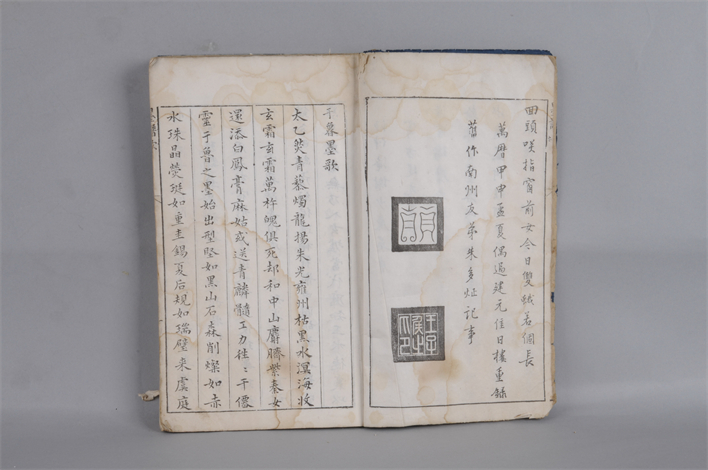 回頭咲指窗前女今日雙蛾若個長
萬曆甲申孟夏偶過建元佳日樓重錄
舊作南州友弟朱多炡記事
于魯墨歌
太乙熒青藜燭龍揚朱光雍州枯黑水溟海收
玄霜玄霜萬杵魄俱死却和中山麝臍紫秦女
還添白鳳膏麻姑或送青麟髓工力往〻干僊
靈于魯之墨始出型堅如黑山石森削燦如赤
水珠晶熒珽如重圭錫夏后規如瑞璧來虞庭